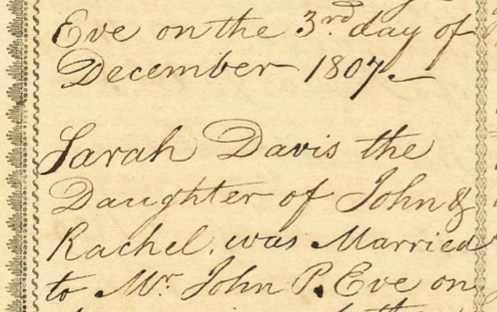 Eve on the 3rd. day of
December 1807_
Sarah Davis the
Daughter of John &
Rachel, was Married
to Mr. John P. Eve on